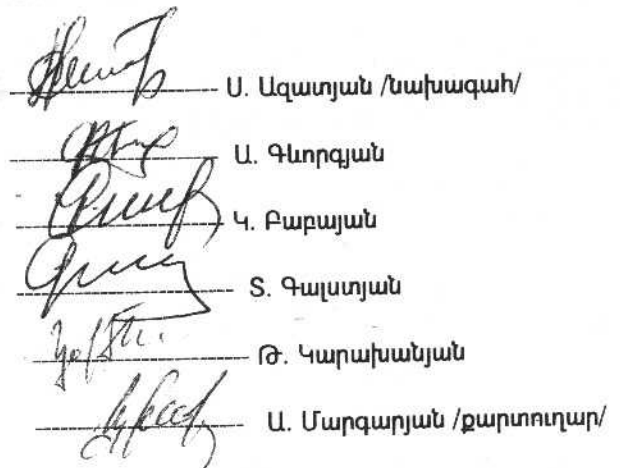 Ս. Ազատյան /նախագահ/
Ա. Գևորգյան
Կ. Բաբայան
Տ. Գալստյան
Թ. Կարախանյան
Ա. Մարգարյան /քարտուղար/